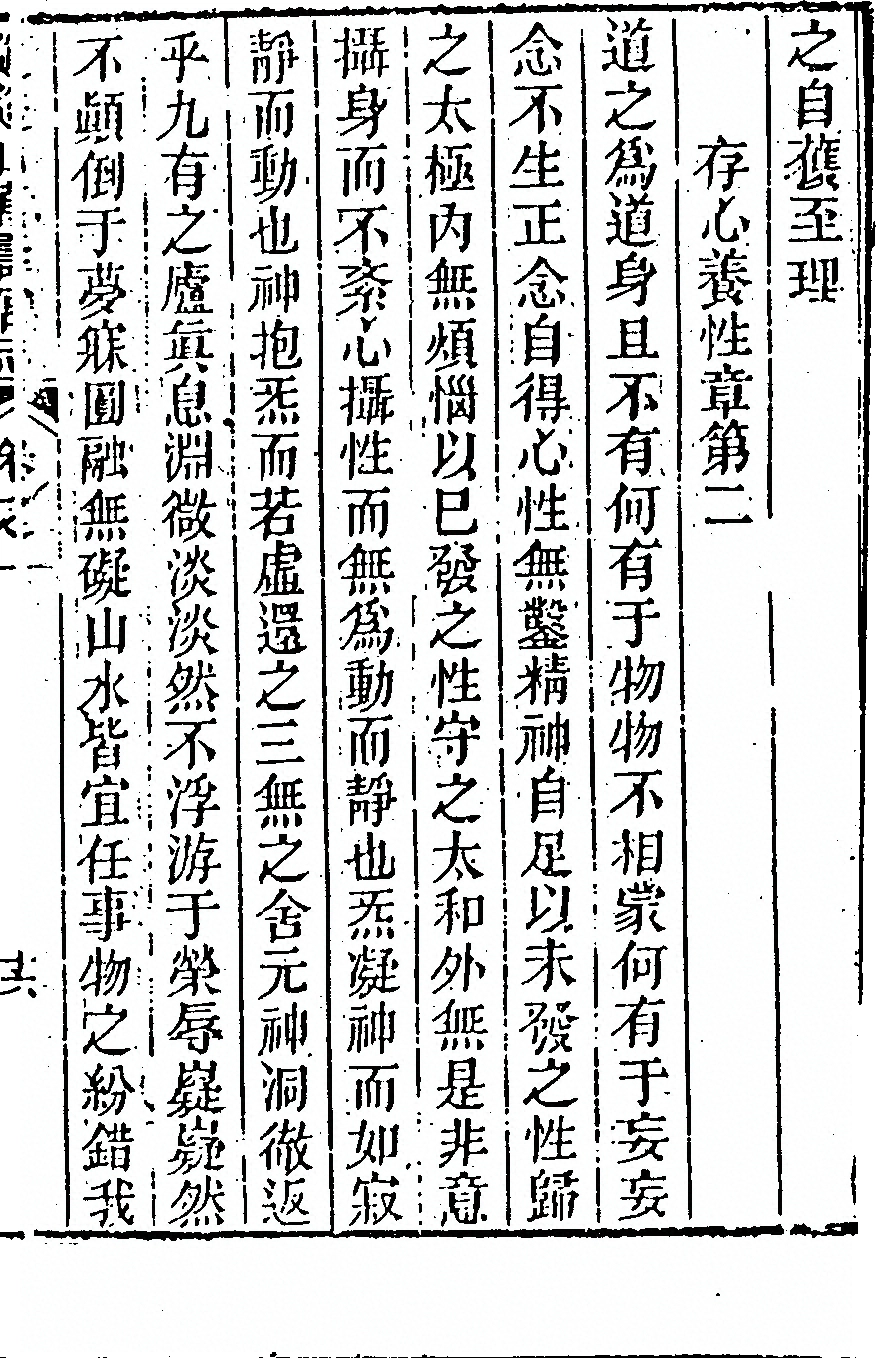 之自㩦至理
存心養性章第二
道之爲道身且不有何有于物物不相蒙何有于妄妄
念不生正念自得心性無鑿精神自足以未發之性歸
之太極內無煩惱以已發之性守之太和外無是非意
攝身而不紊心攝性而無爲動而靜也炁凝神而如寂
靜而動也神抱炁而若虛還之三無之舍元神洞徹返
乎九有之廬眞息淵微淡淡然不浮游于榮辱嶷嶷然
不顚倒于夢寐圓融無礙山水皆宜任事物之紛錯我